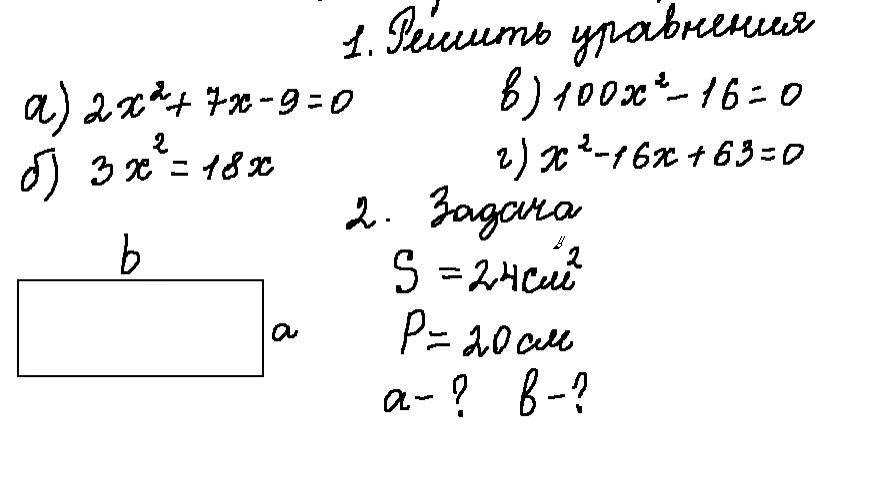 1. Решить уравнения
а) 2x² + 7x - 9 = 0
в) 100x² - 16 = 0
б) 3x² = 18x
г) x² - 16x + 63 = 0
2. Задача
b
S = 24см²
a
P = 20см
a - ? в - ?